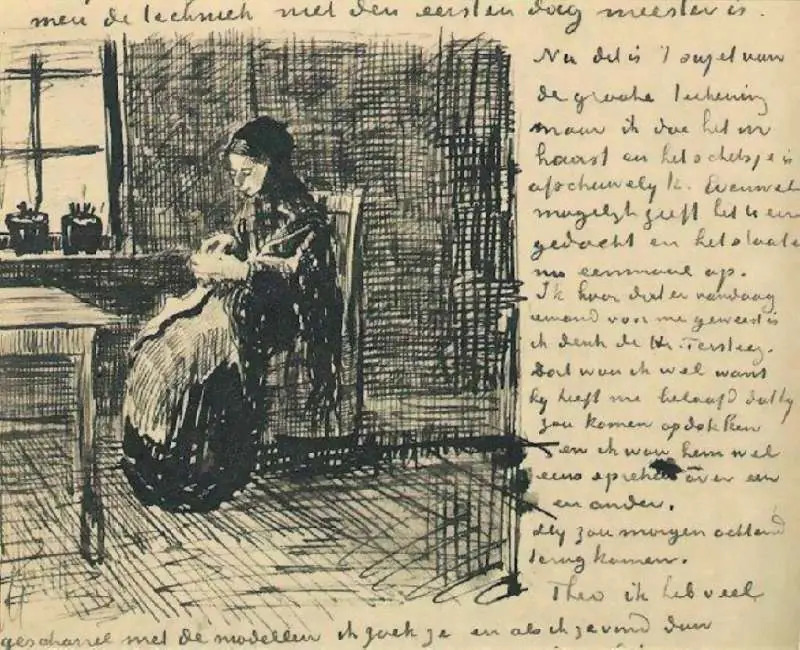 men de techniek met den eersten dag meester is.
Nu dit is 't sujet van
de groote teekening
maar ik doe het in
haast en het schetsje is
afschuwelijk. Evenwel
mogelijk geeft het U een
gedacht en het slaat
nu eenmaal op.
Ik hoor dat er vandaag
iemand voor me geweest is
ik denk de Hr. Tersteeg.
Dat wou ik wel want
hij heeft me beloofd dat hij
zou komen opdokken
en ik wou hem wel
eens spreken over een
en ander.
Hij zou morgen ochtend
terug komen.
Theo ik heb veel
gescharrel met de modellen ik zoek ze en als ik ze vind dan